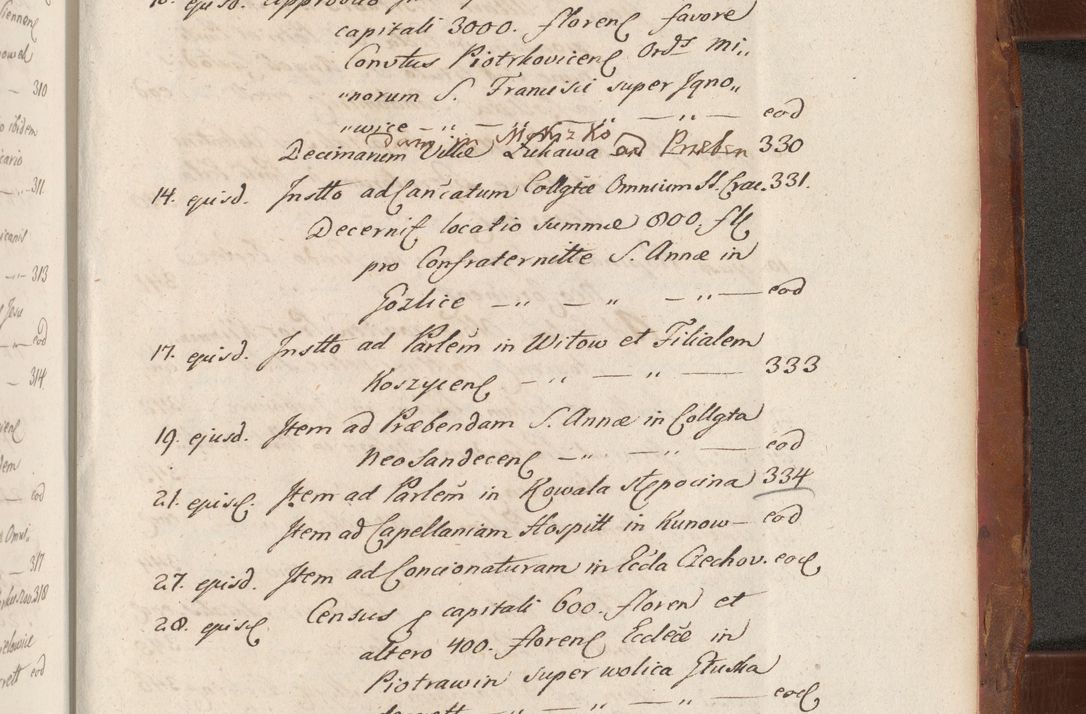 capitali 3000. floren favore
Convtus Piotrkovicen Ords Mi„
„norum S. Francisci super Igno„
„wice — „ — „ — „ — eod
Decimarum Villæ Łukawa 330
14. ejusd. Instto ad Cancatum Collgtæ Omnium SS. Crac. 331.
Decernit locatio summæ 800. fl
pro Confraternitte S. Annæ in
Gozlice — „ — „ — „ — eod
17. ejusd. Instto ad Parlem in Witow et Filialem
Koszycen — „ — „ — 333
19. ejusd. Item ad Præbendam S. Annæ in Collgta
NeoSandecen — „ — „ — eod
21. ejusd. Item ad Parlem in Kowala Stępocina 334
Item ad Capellaniam Hospitt in Kunow — eod
27. ejusd. Item ad Concionaturam in Eccla Czechov. eod
28. ejusd Census p capitali 600. floren et
altero 400. floren Ecclæ in
Piotrawin super wolica Głuska
— „ — „ — eod
310
311
313
eod
314
eod
317
318
eod